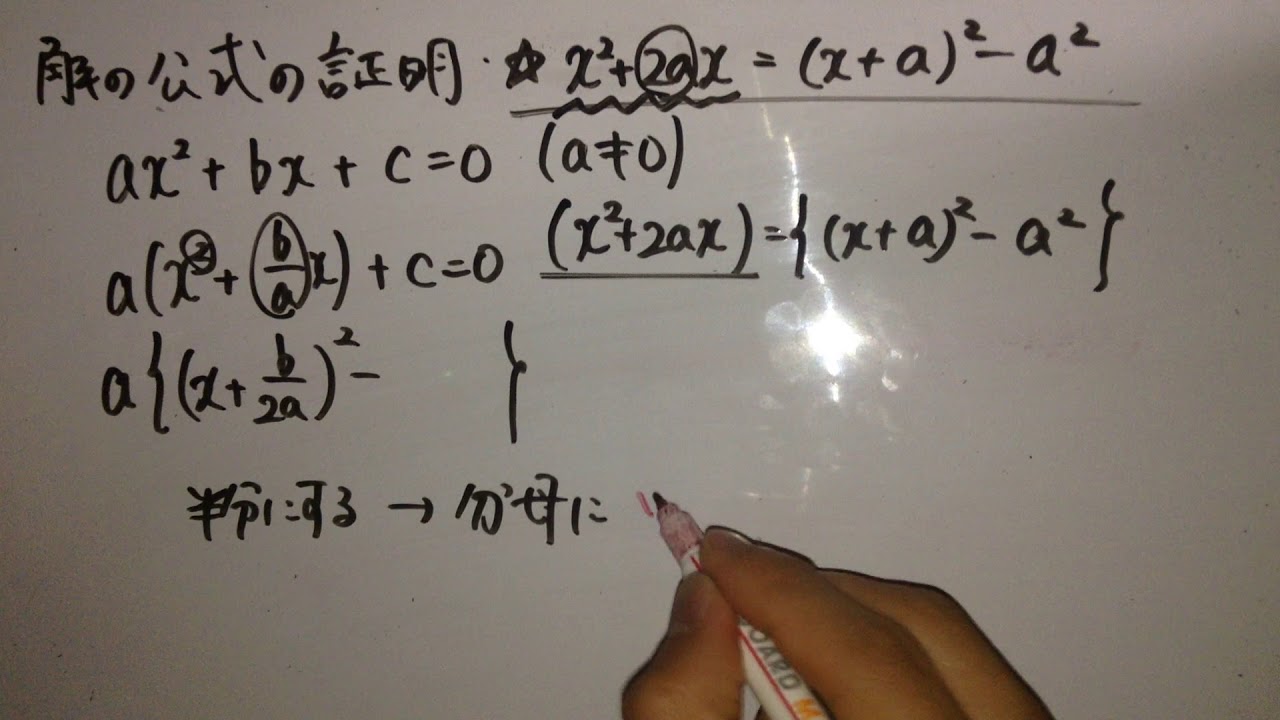 解の公式の証明・☆ x²+2ax = (x+a)²-a²
ax²+bx+c=0 (a≠0)
a(x²+b/a x)+c=0 (x²+2ax)={(x+a)²-a²}
a{(x+b/2a)²- }
半分にする → 分母に
OARD M